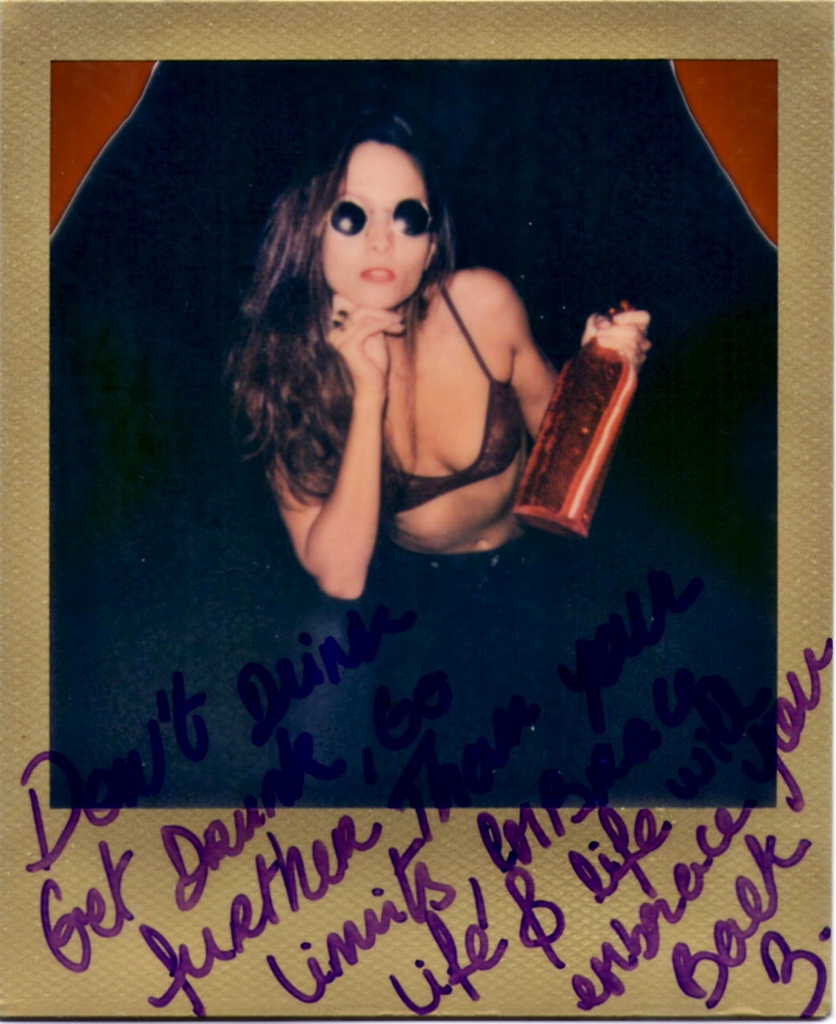 Don't Drink
Get Drunk, Go
further Than your
Limits, embrace
Life & life will
embrace you
Back
B.